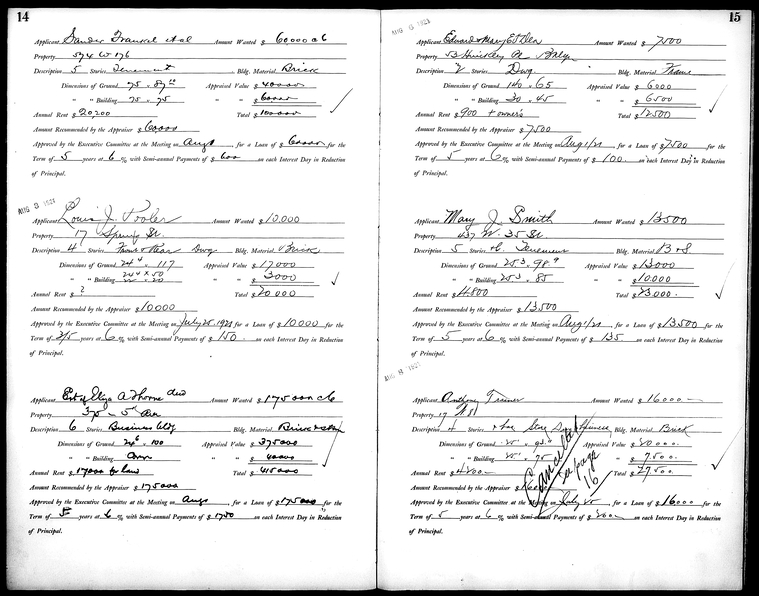 14
Applicant Sander Frankel et al Amount Wanted $ 60000
Property 574 W 176
Description 5 Stories Tenement Bldg. Material Brick
Dimensions of Ground 75 x 87 10 Appraised Value $ 40000
" " Building 75 x 75 " " $ 60000
Annual Rent $ 20200 Total $ 100000
Amount Recommended by the Appraiser $ 60000
Approved by the Executive Committee at the Meeting on Aug 1 for a Loan of $ 60000 for the
Term of 5 years at 6 % with Semi-annual Payments of $ 600 on each Interest Day in Reduction
of Principal.
AUG 3 1921
Applicant Louis J. Amount Wanted $ 10.000
Property 17 Spring St.
Description 4 Stories Front & Rear Dwg Bldg. Material Brick
Dimensions of Ground 24 4 x 117 Appraised Value $ 17000
" " Building 24 4 x 50 " " $ 3000
Annual Rent $ ? Total $ 20000
Amount Recommended by the Appraiser $ 10000
Approved by the Executive Committee at the Meeting on July 25, 1921 for a Loan of $ 10000 for the
Term of years at 6 % with Semi-annual Payments of $ 150 on each Interest Day in Reduction
of Principal.
Applicant Est of Eliza A Thorne decd Amount Wanted $ 175000
Property 5th Ave
Description 6 Stories Business bldg Bldg. Material Brick
Dimensions of Ground 24 6 x 100 Appraised Value $ 375000
" " Building " " $ 40000
Annual Rent $ 17000 Total $ 415000
Amount Recommended by the Appraiser $ 175000
Approved by the Executive Committee at the Meeting on Aug 1 for a Loan of $ 175000 for the
Term of 5 years at 6 % with Semi-annual Payments of $ 1750 on each Interest Day in Reduction
of Principal.
15
AUG 5 1921
Applicant Edward & Mary E. Amount Wanted $ 7500
Property 53 Hinckley Pl Bklyn
Description 2 Stories Dwg. Bldg. Material Frame
Dimensions of Ground 140 x 65 Appraised Value $ 6000
" " Building 30 x 45 " " $ 6500
Annual Rent $ 900 + owner's Total $ 12500
Amount Recommended by the Appraiser $ 7500
Approved by the Executive Committee at the Meeting on Aug 1/21 for a Loan of $ 7500 for the
Term of 5 years at 6 % with Semi-annual Payments of $ 100. on each Interest Day in Reduction
of Principal.
Applicant Mary J. Smith Amount Wanted $ 13500
Property 437 W. 35 St
Description 5 Stories Tenement Bldg. Material B & S.
Dimensions of Ground 25 3 x 98 9 Appraised Value $ 13000
" " Building 25 3 x 85 " " $ 10.000
Annual Rent $ 4800 Total $ 23000.
Amount Recommended by the Appraiser $ 13500
Approved by the Executive Committee at the Meeting on Aug 1/21 for a Loan of $ 13500 for the
Term of 5 years at 6 % with Semi-annual Payments of $ 135 on each Interest Day in Reduction
of Principal.
AUG 8 1921
Applicant Anthony Amount Wanted $ 16000
Property 17
Description 4 Stories Bldg. Material Brick
Dimensions of Ground 25 x Appraised Value $ 20000.
" " Building 25 x 75 " " $ 7500.
Annual Rent $ Total $ 27500.
Amount Recommended by the Appraiser $
Approved by the Executive Committee at the Meeting on July 25 for a Loan of $ 16000 for the
Term of 5 years at 6 % with Semi-annual Payments of $ 200 on each Interest Day in Reduction
of Principal.
Cancelled
See page
16